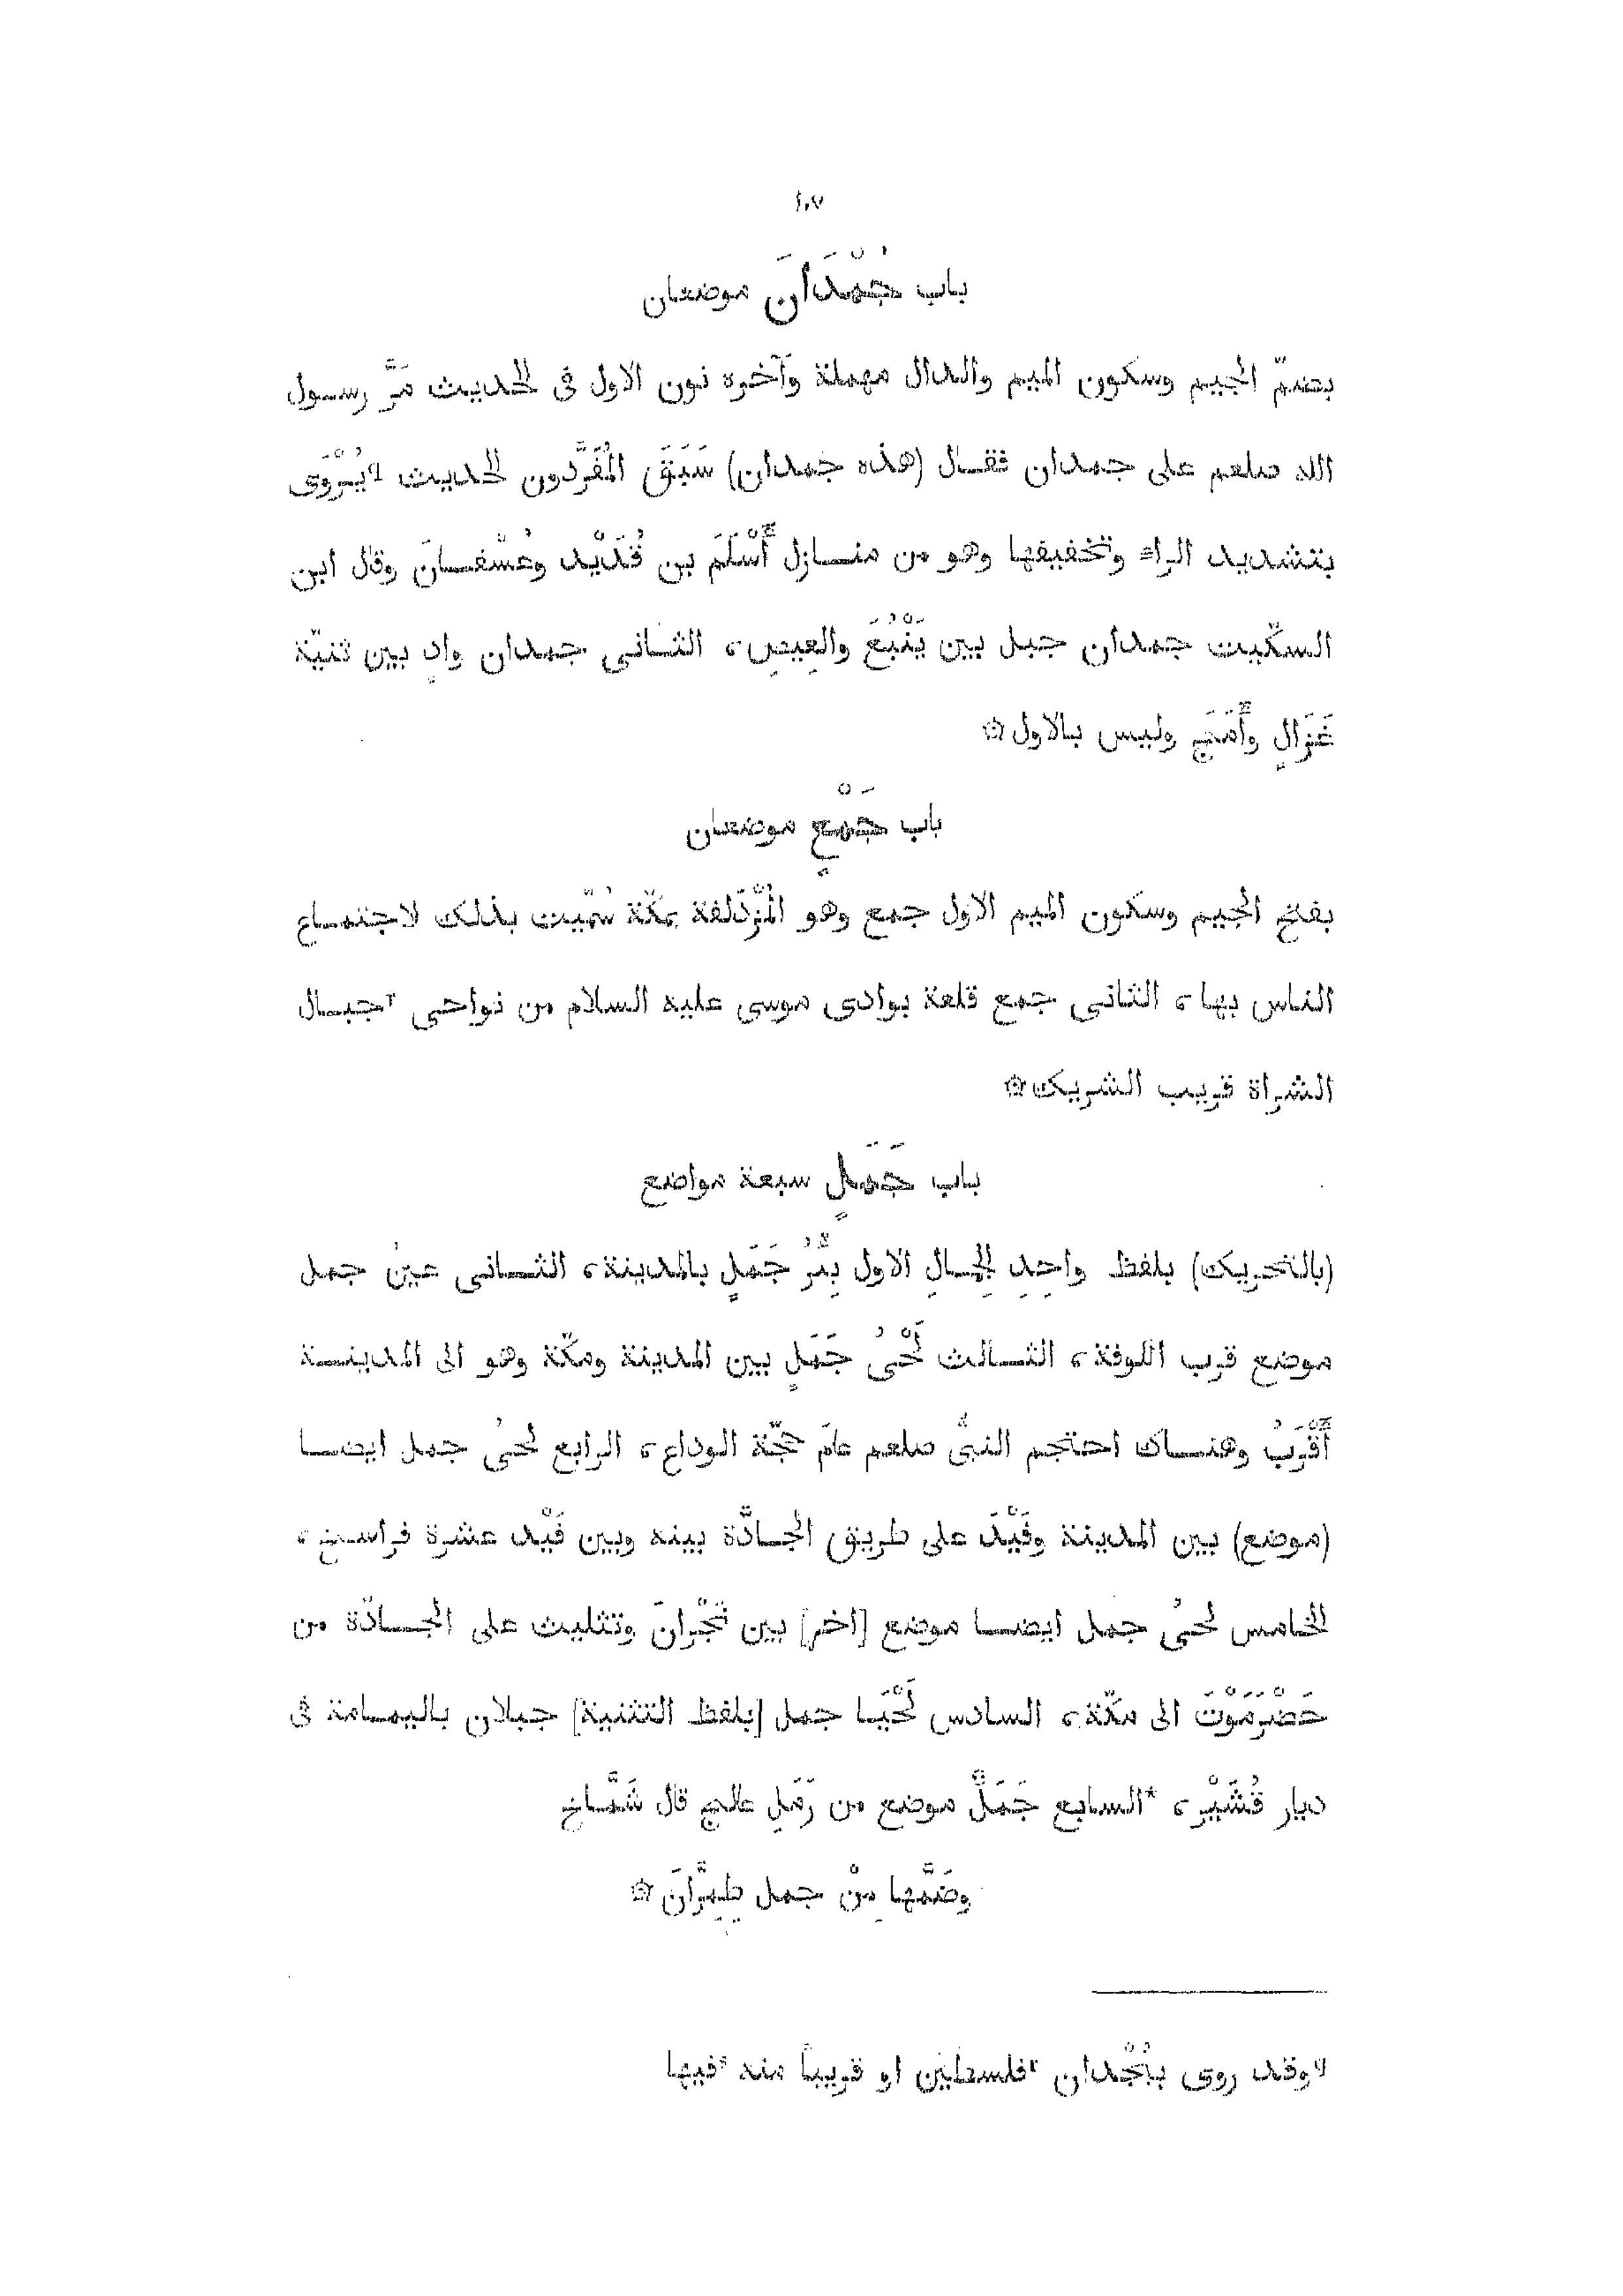 ١٠٧
باب جُمْدَانَ موضعان
بضمّ الجيم وسكون الميم والدال مهملة وآخره نون الاول فى الحديث مَرَّ رسول
الله صلعم على جمدان فقال (هذه جمدان) سَبَقَ المُفَرَّدون الحديث يُرْوَى
بتشديد الراء وتخفيفها وهو من منازل أَسْلَمَ بين قُدَيْد وعُسْفانَ وقال ابن
السكّيت جمدان جبل بين يَنْبُعَ والعِيصِ، الثانى جمدان وادٍ بين ثنيّة
غَزَالٍ وأَمَجٍ وليس بالاول ۞
باب جَمْعٍ موضعان
بفتح الجيم وسكون الميم الاول جمع وهو المُزْدَلفة بمكّة سُمّيت بذلك لاجتماع
الناس بها، الثانى جمع قلعة بوادى موسى عليه السلام من نواحى *جبال
الشراة قريب الشريك ۞
باب جَمَلٍ سبعة مواضع
(بالتحريك) بلفظ واحِدِ الجِمالِ الاول بِئْرُ جَمَلٍ بالمدينة، الثانى عينُ جمل
موضع قرب الكوفة، الثالث لَحْىُ جَمَلٍ بين المدينة ومكّة وهو الى المدينة
أَقْرَبُ وهناك احتجم النبىُّ صلعم عامَ حجّة الوداع، الرابع لحىُ جمل ايضا
(موضع) بين المدينة وفَيْدَ على طريق الجادّة بينه وبين فَيْد عشرة فراسخ،
الخامس لحىُ جمل ايضا موضع [اخر] بين نَجْرانَ وتثليث على الجادّة من
حَضْرَمَوْتَ الى مكّة، السادس لَحْيَا جمل [بلفظ التثنية] جبلان باليمامة فى
ديار قُشَيْر، *السابع جَمَلٌ موضع من رَمْلِ عالج قال شَمَّاخ
وضَمَّها مِنْ جمل طِمِرَّانَ ۞
وقد روى بِبُجْدان فلسطين او قريبا منه فيها